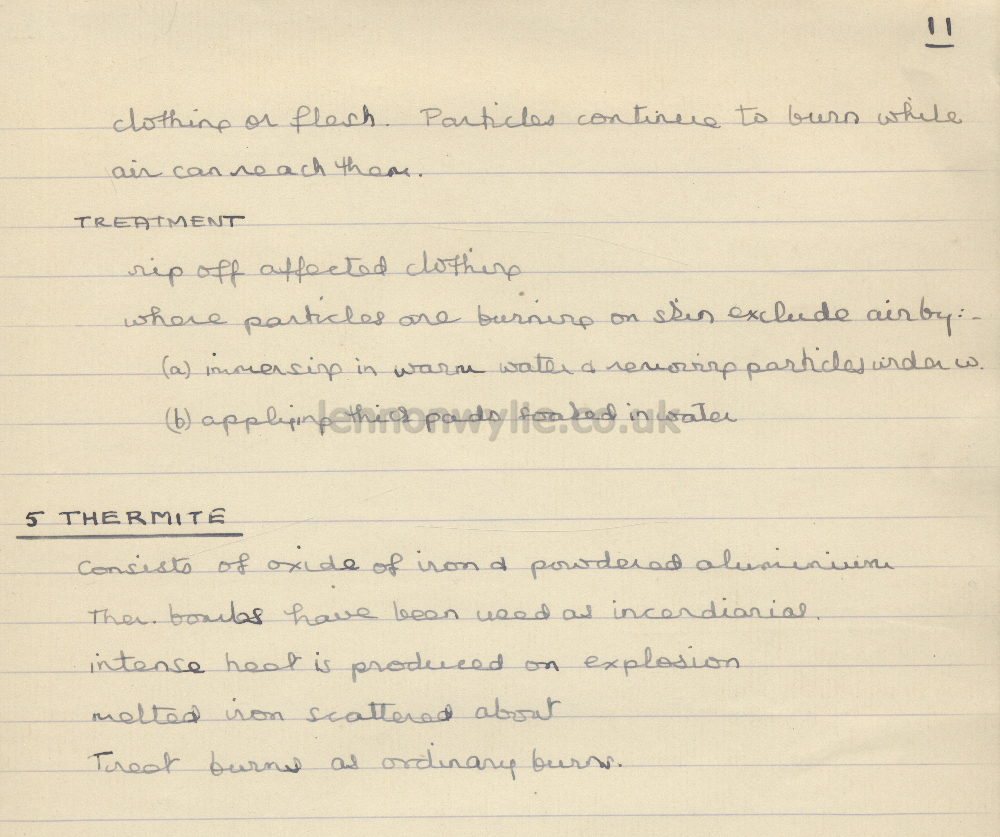 11
clothing or flesh. Particles continue to burn while
air can reach them.
TREATMENT
rip off affected clothing
where particles are burning on skin exclude air by:-
(a) immersing in warm water & removing particles under w.
(b) applying thick pads soaked in water
lennonwylie.co.uk
5 THERMITE
Consists of oxide of iron & powdered aluminium
Ther. bombs have been used as incendiaries.
intense heat is produced on explosion
melted iron scattered about
Treat burns as ordinary burns.